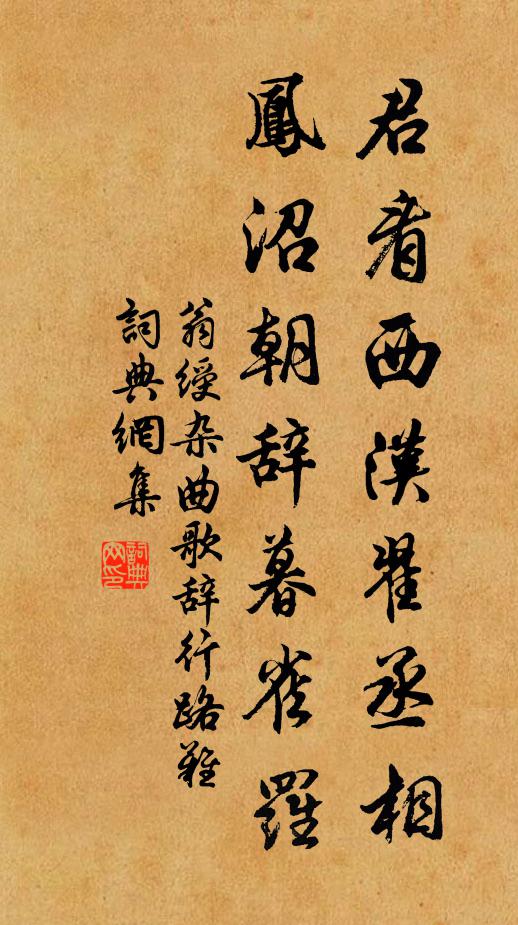 君看西漢翟丞相
鳳沼朝辞暮雀羅
翁綬杂曲歌辞行路難
詞典網集
詞典
网印